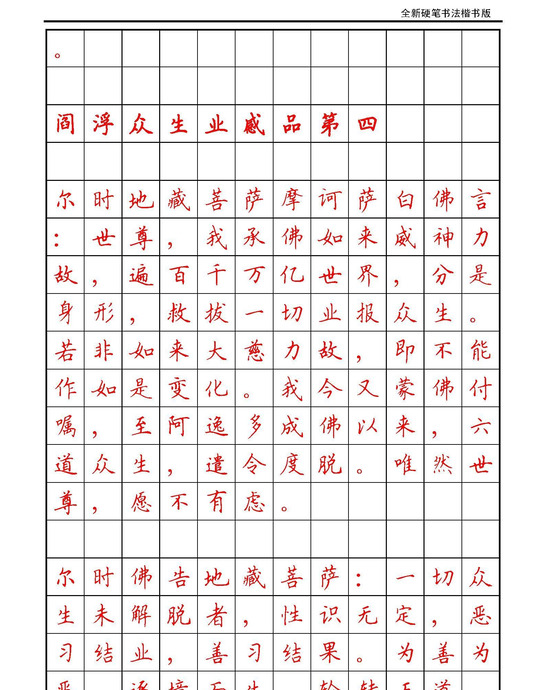 全新硬笔书法楷书版
。
阎浮众生业感品第四
尔时地藏菩萨摩诃萨白佛言
：世尊，我承佛如来威神力
故，遍百千万亿世界，分是
身形，救拔一切业报众生。
若非如来大慈力故，即不能
作如是变化。我今又蒙佛付
嘱，至阿逸多成佛以来，六
道众生，遣令度脱。唯然世
尊，愿不有虑。
尔时佛告地藏菩萨：一切众
生未解脱者，性识无定，恶
习结业，善习结果。为善为